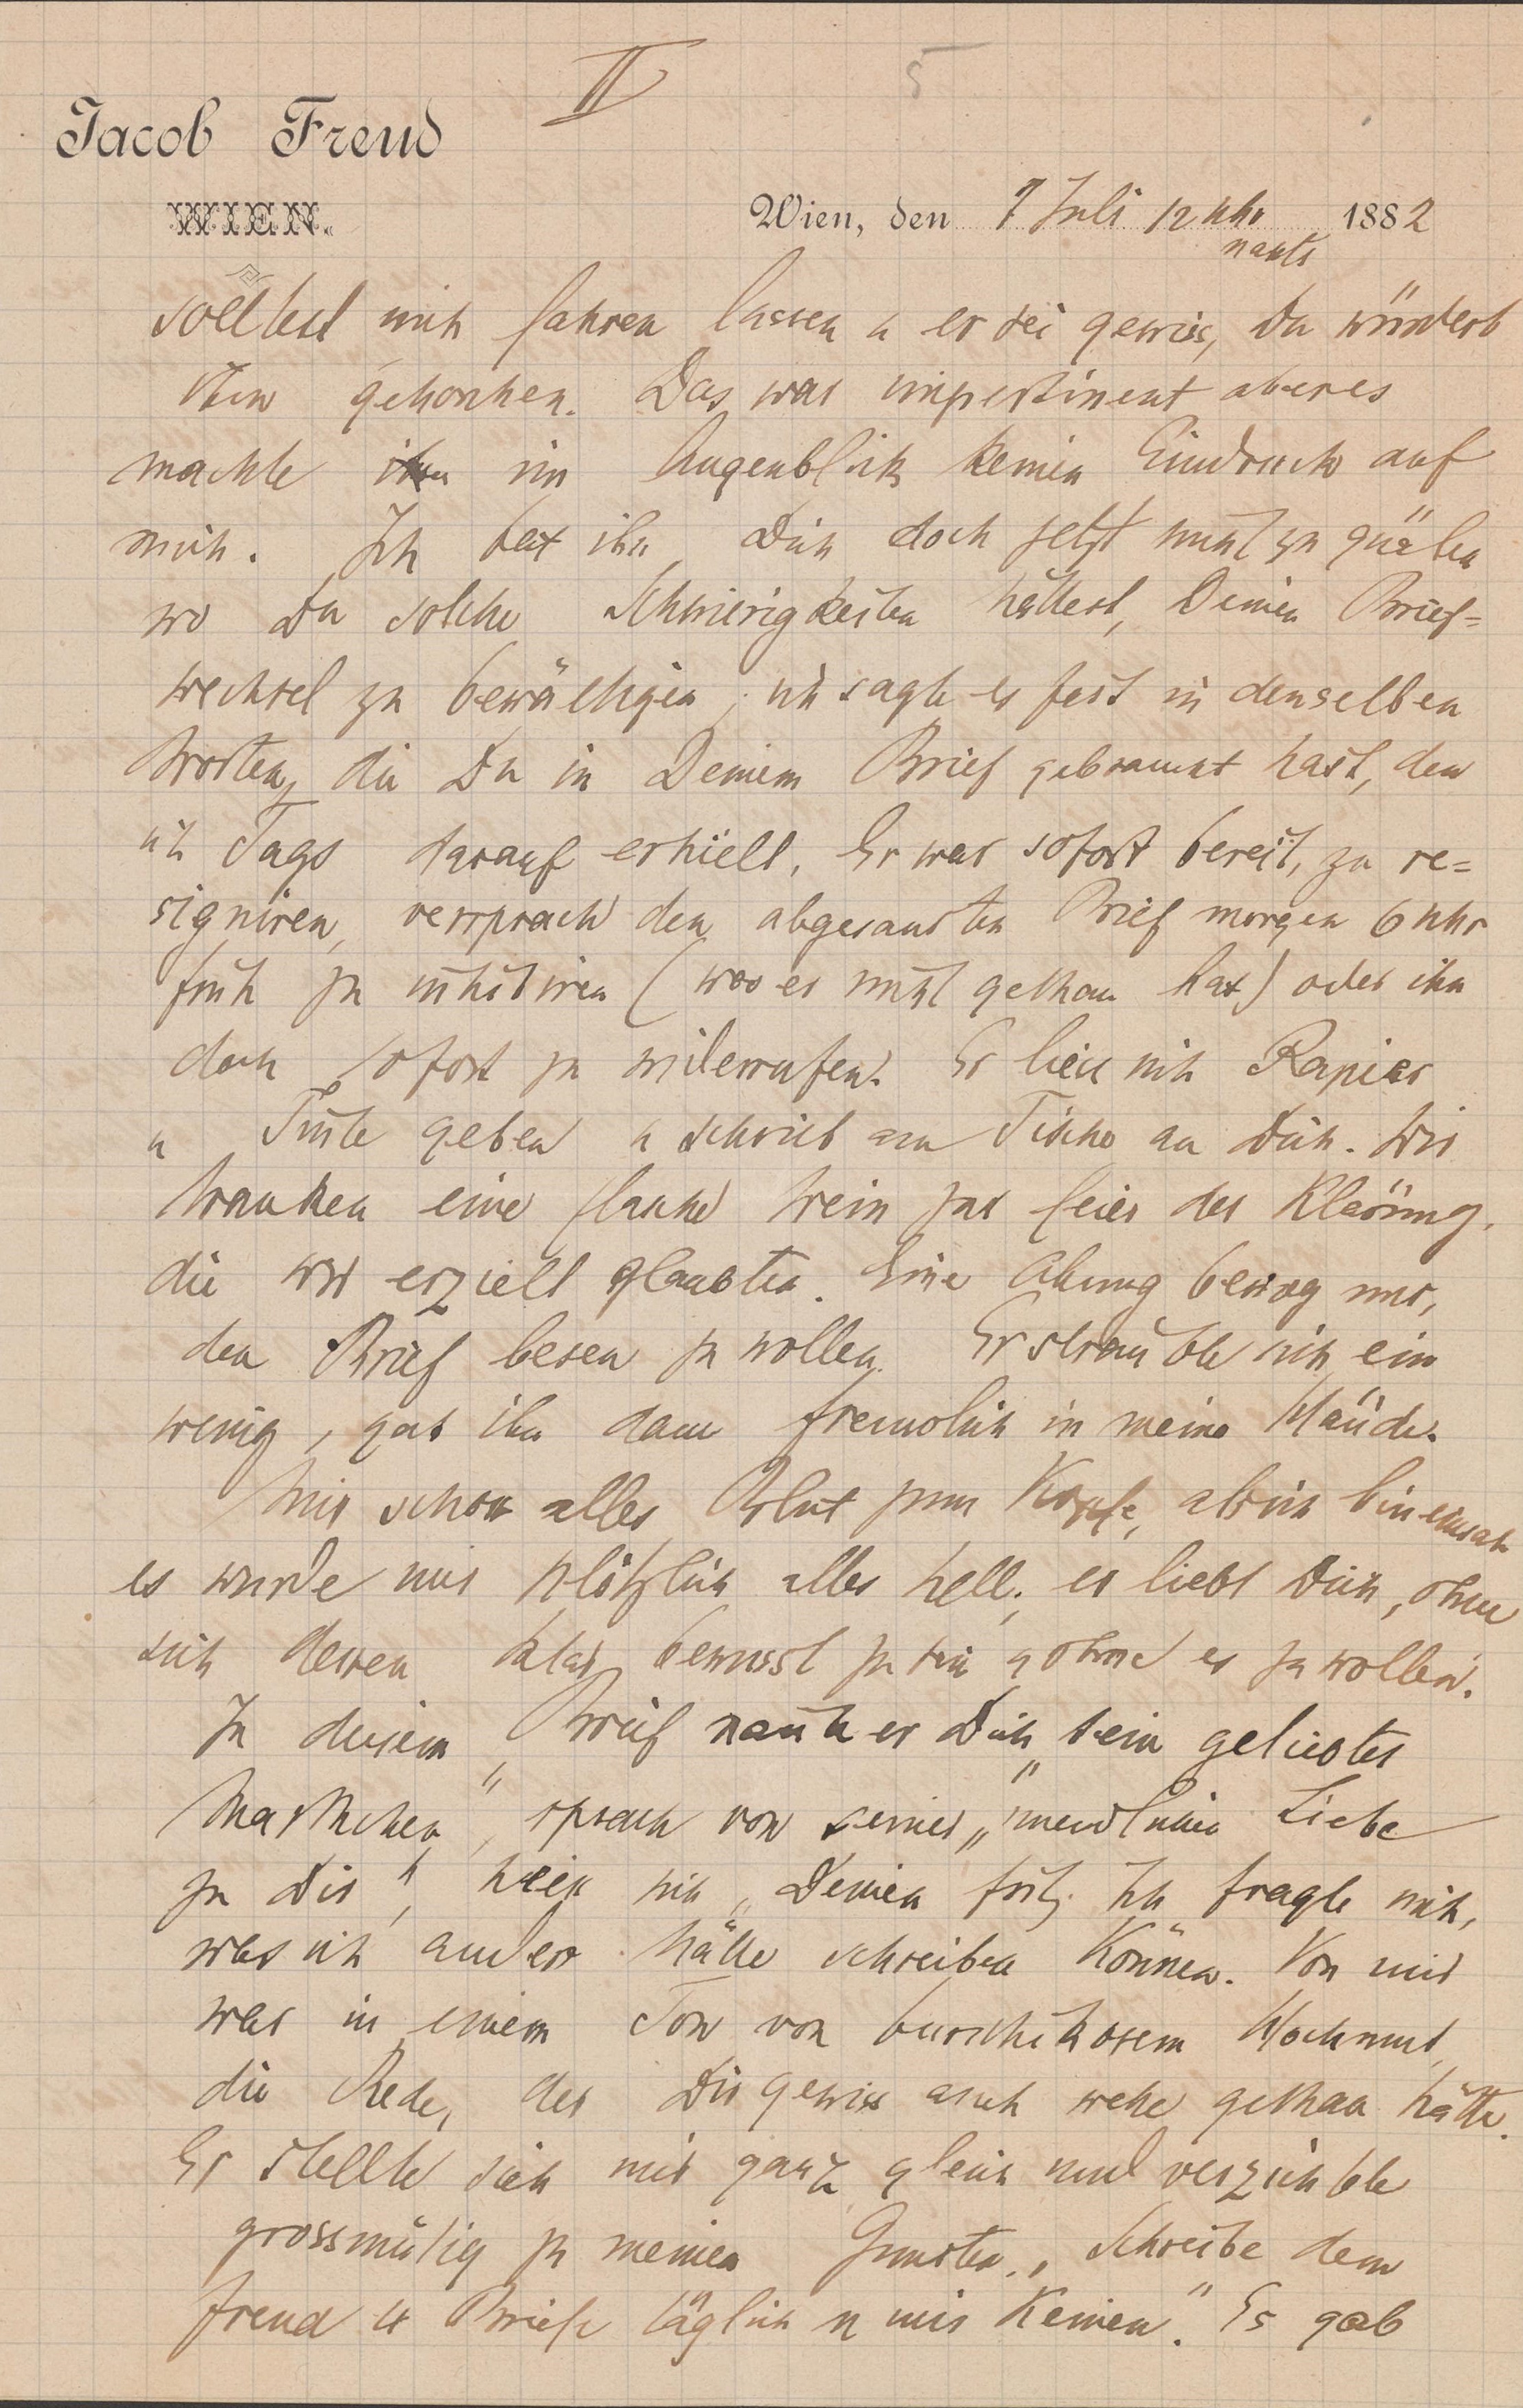 II 5
Jacob Freud
WIEN.
Wien, den 7 Juli 12 Uhr 1882
nachts
solltest mich fahren lassen u er sei gewiss, Du würdest
ihm gehorchen. Das war impertinent aber es
machte im Augenblick keinen Eindruck auf
mich. Ich bat ihn, Dich doch jetzt nicht zu quälen
wo Du solche Schwierigkeiten hättest, Deinen Brief=
wechsel zu bewältigen, ich sagte es fast in denselben
Worten, die Du in Deinem Brief gebraucht hast, den
ich Tags darauf erhielt. Er war sofort bereit, zu re=
signiren, versprach den abgesandten Brief morgen 6 Uhr
früh zu (was er nicht gethan hat) oder ihn
doch sofort zu widerrufen. Er liess sich Papier
u Tinte geben u schrieb am Tische an Dich. Wir
tranken eine Flasche Wein zur Feier der Klärung,
die wir erzielt glaubten. Eine Ahnung bewog mich,
den Brief lesen zu wollen. Er sträubte sich ein
wenig, gab ihn dann freundlich in meine Hände.
Mir schoss alles Blut zum Kopfe, als ich hineinsah
es wurde mir plötzlich alles hell, er liebt Dich, ohne
sich dessen klar bewusst zu sein u ohne es zu wollen.
In diesem Brief nannte er Dich „sein geliebtes
Marthchen“, sprach von seiner „unendlichen Liebe
zu Dir“, hiess sich „Deinen Fritz. Ich fragte mich,
was ich anders hätte schreiben können. Von mir
war in einem Ton von burschikosem Hochmut
die Rede, der Dir gewiss auch wehe gethan hätte.
Er stellte sich mir ganz gleich und verzichtete
grossmütig zu meinen Gunsten. „Schreibe dem
Freud 4 Briefe täglich u mir keinen.“ Es gab